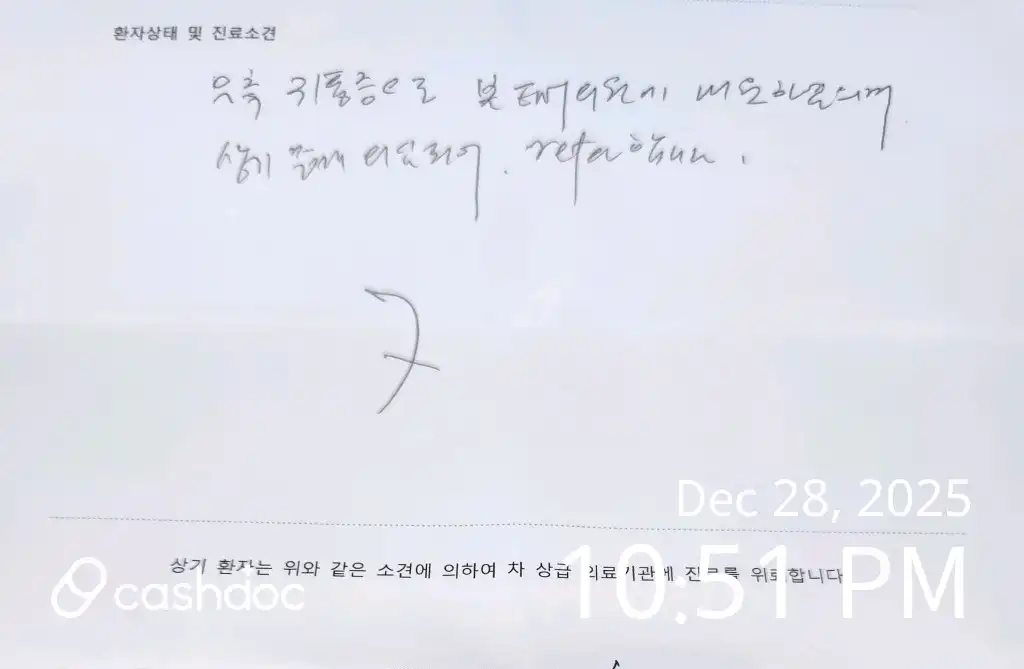 환자상태 및 진료소견
우측 귀통증으로 본 의원에 내원하신
상기 의심되어. refer 합니다.
Dec 28, 2025
상기 환자는 위와 같은 소견에 의하여 차 상급 의료기관에 진료를 위뢰합니다
10:51 PM
cashdoc